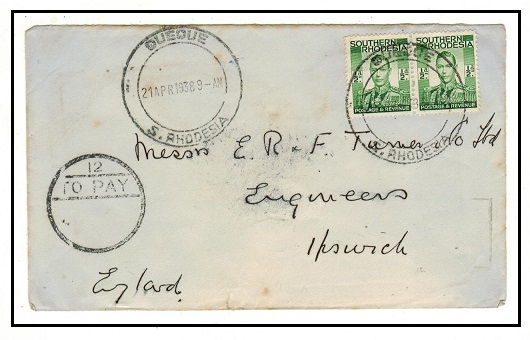 QUEQUE
21 APR 1938 9-AM
S. RHODESIA
SOUTHERN RHODESIA
½
½
POSTAGE & REVENUE
SOUTHERN RHODESIA
½
½
POSTAGE & REVENUE
QUEQUE
S. RHODESIA
Messrs E. R & F. Turner & Co Ltd
12
TO PAY
Engineers
Ipswich
England